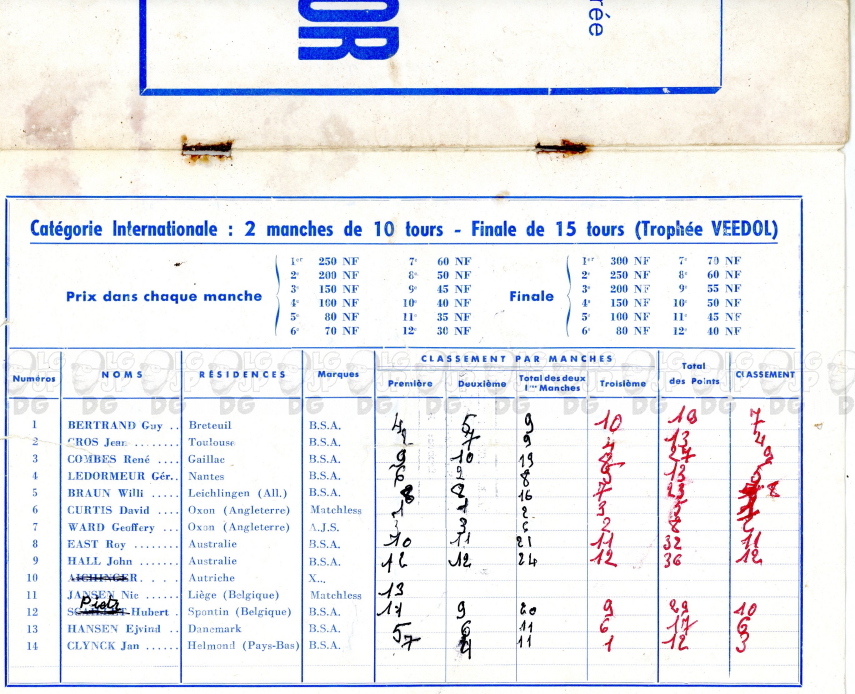 OR
rée
Catégorie Internationale : 2 manches de 10 tours - Finale de 15 tours (Trophée VEEDOL)
1er 250 NF 7e 60 NF 1er 300 NF 7e 70 NF
2e 200 NF 8e 50 NF 2e 250 NF 8e 60 NF
3e 150 NF 9e 45 NF 3e 200 NF 9e 55 NF
Prix dans chaque manche 4e 100 NF 10e 40 NF Finale 4e 150 NF 10e 50 NF
5e 80 NF 11e 35 NF 5e 100 NF 11e 45 NF
6e 70 NF 12e 30 NF 6e 80 NF 12e 40 NF
CLASSEMENT PAR MANCHES
Numéros NOMS RÉSIDENCES Marques Première Deuxième Total des deux 1res Manches Troisième Total des Points CLASSEMENT
1 BERTRAND Guy .. Breteuil B.S.A. 4 5 9 10 19 7
2 CROS Jean ........ Toulouse B.S.A. 2 7 9 4 13 4
3 COMBES René .... Gaillac B.S.A. 9 10 19 8 27 9
4 LEDORMEUR Gér.. Nantes B.S.A. 6 2 8 5 13 5
5 BRAUN Willi ..... Leichlingen (All.) B.S.A. 8 8 16 7 23 8
6 CURTIS David .... Oxon (Angleterre) Matchless 1 1 2 3 5
7 WARD Geoffery ... Oxon (Angleterre) A.J.S. 3 3 6 2 8
8 EAST Roy ........ Australie B.S.A. 10 11 21 11 32 11
9 HALL John ....... Australie B.S.A. 12 12 24 12 36 12
10 AICHINGER. . . . Autriche X...
11 JANSEN Nic ------ Liège (Belgique) Matchless 13
Piotz
12 Hubert . Spontin (Belgique) B.S.A. 11 9 20 9 29 10
13 HANSEN Ejvind .. Danemark B.S.A. 5 6 11 6 17 6
14 CLYNCK Jan ...... Helmond (Pays-Bas) B.S.A. 7 4 11 1 12 3